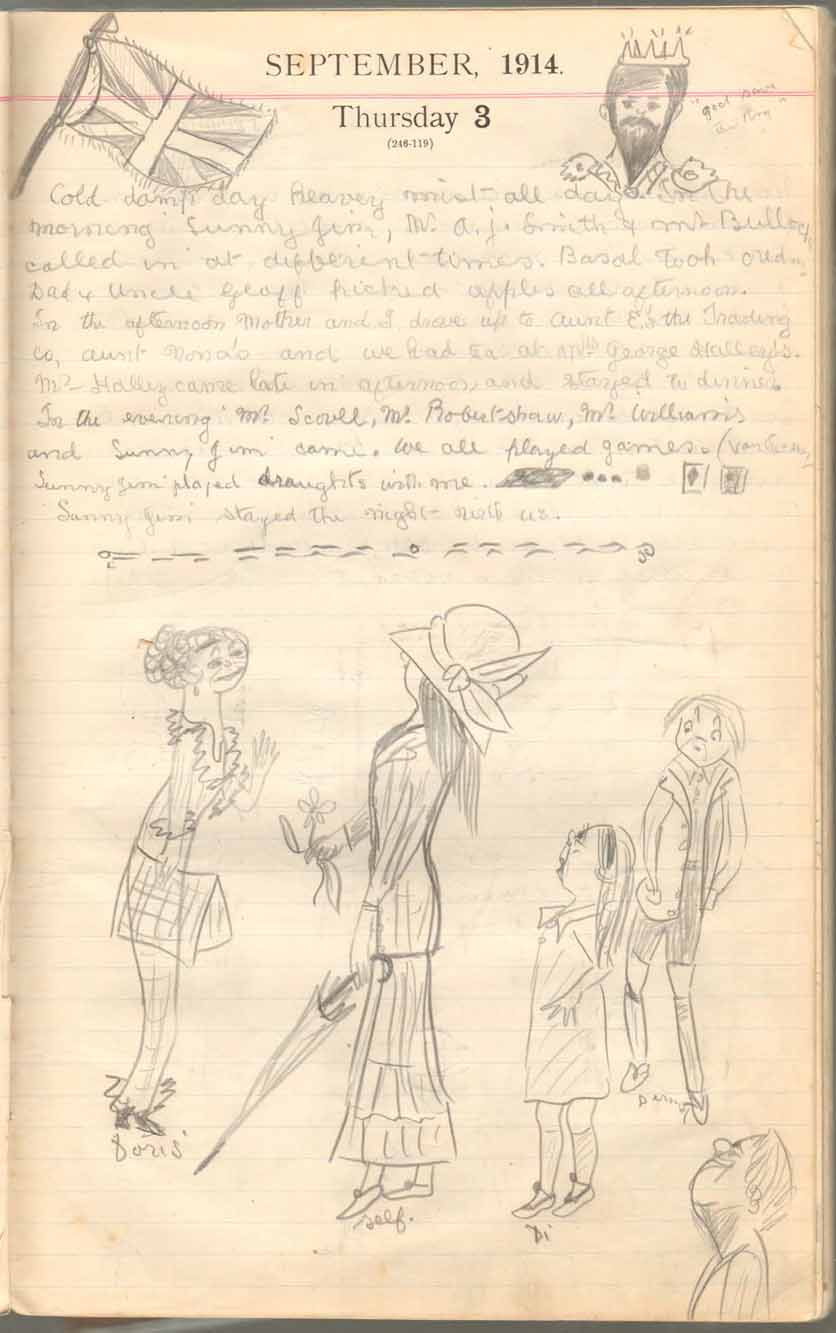 SEPTEMBER, 1914.
Thursday 3
(246-119)
"god save
the King"
Cold damp day heavey mist all day. In the
morning Sunny Jim, Mr. A. J. Smith & Mr Bullock
called in at different times. Basal Took
Dad & Uncle Geoff picked apples all afternoon.
In the afternoon Mother and I drove up to Aunt E's the Trading
Co, aunt Nona's and we had tea at Mrs George Halley's.
Mr Halley came late in afternoon and stayed to dinner.
In the evening Mr. Scovell, Mr. Robertshaw, Mr. Williams
and Sunny Jim came. We all played games.
Sunny Jim played draughts with me.
Sunny Jim stayed the night with us.
Doris
self.
Di